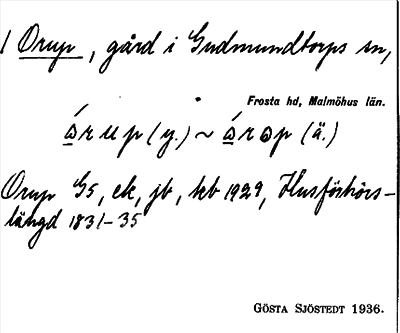 1 Orup, gård i Gudmundtorps sn,
Frosta hd, Malmöhus län.
ώrup (y.) ~ ώrɷp (ä.)
Orup G5, ek, jb, kb 1929, Husförhörs-
längd 1831-35
GÖSTA SJÖSTEDT 1936.